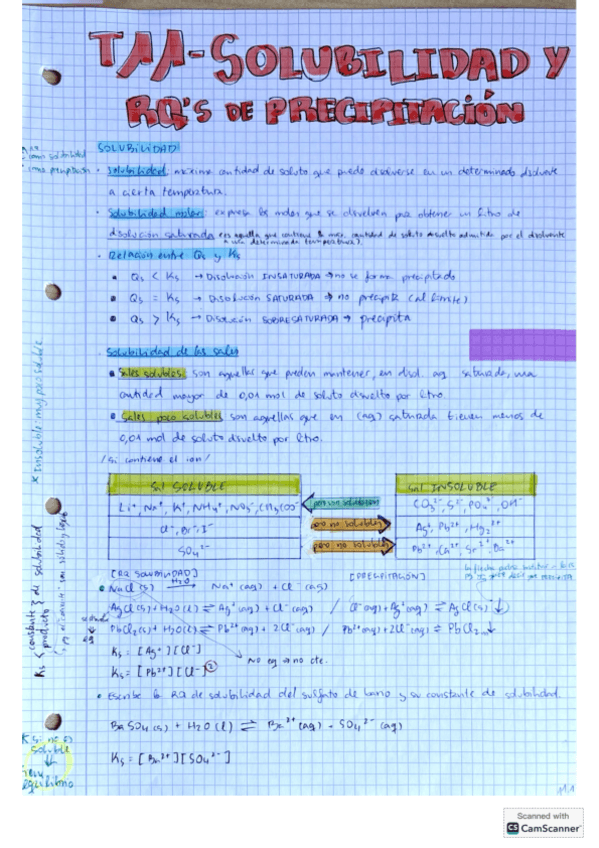 T11-SOLUBILIDAD Y
RQ'S DE PRECIPITACIÓN
SOLUBILIDAD
como solubilidad
como precipitación
• Solubilidad: máxima cantidad de soluto que puede disolverse en un determinado disolvente
a cierta temperatura.
• Solubilidad molar: expresa los moles que se disuelven para obtener un litro de
disolución saturada (es aquella que contiene la max. cantidad de soluto disuelto admitida por el disolvente
a una determinada temperatura).
• Relación entre Qs y Ks
• Qs < Ks → Disolución INSATURADA → no se forma precipitado
• Qs = Ks → Disolución SATURADA → no precipita (al límite)
• Qs > Ks → Disolución SOBRESATURADA → precipita
* Insoluble: muy poco soluble
Solubilidad de las sales
• Sales solubles: son aquellas que pueden mantener, en disol. aq saturada, una
cantidad mayor de 0,01 mol de soluto disuelto por litro.
• Sales poco solubles: son aquellas que en (aq) saturada tienen menos de
0,01 mol de soluto disuelto por litro.
/Si contiene el ion/
Sal SOLUBLE
Sal INSOLUBLE
Li⁺, Na⁺, K⁺, NH₄⁺, NO₃⁻, CH₃COO⁻
pero son solubles con
CO₃²⁻, S²⁻, PO₄³⁻, OH⁻
Cl⁻, Br⁻, I⁻
pero no solubles
Ag⁺, Pb²⁺, Hg₂²⁺
SO₄²⁻
pero no solubles
Pb²⁺, Ca²⁺, Sr²⁺, Ba²⁺
[RQ SOLUBILIDAD]
[PRECIPITACIÓN]
Ks { constante producto } de solubilidad
• NaCl(s) H₂O → Na⁺(aq) + Cl⁻(aq)
AgCl(s) + H₂O(l) ⇌ Ag⁺(aq) + Cl⁻(aq) / Cl⁻(aq) + Ag⁺(aq) ⇌ AgCl(s) ↓
PbCl₂(s) + H₂O(l) ⇌ Pb²⁺(aq) + 2Cl⁻(aq) / Pb²⁺(aq) + 2Cl⁻(aq) ⇌ PbCl₂ ↓
Ks = [Ag⁺][Cl⁻]
No eq → no cte.
Ks = [Pb²⁺][Cl⁻]²
• Escribe la RQ de solubilidad del sulfato de bario y su constante de solubilidad.
BaSO₄(s) + H₂O(l) ⇌ Ba²⁺(aq) - SO₄²⁻(aq)
K si no es
soluble
↓
tiene
equilibrio
Ks = [Ba²⁺][SO₄²⁻]
Scanned with
CS CamScanner